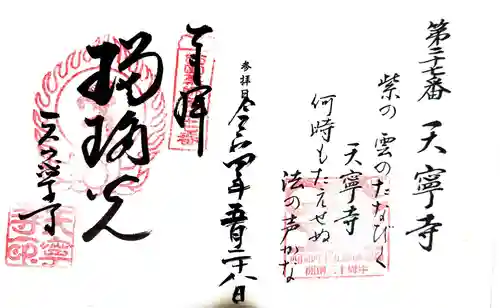 第二十七番 天寧寺
紫の 雲のたなびく
天寧寺
何時もたえせぬ
法の声かな
参拝日 令和四年五月二十八日
奉拝
瑠璃光
天寧寺